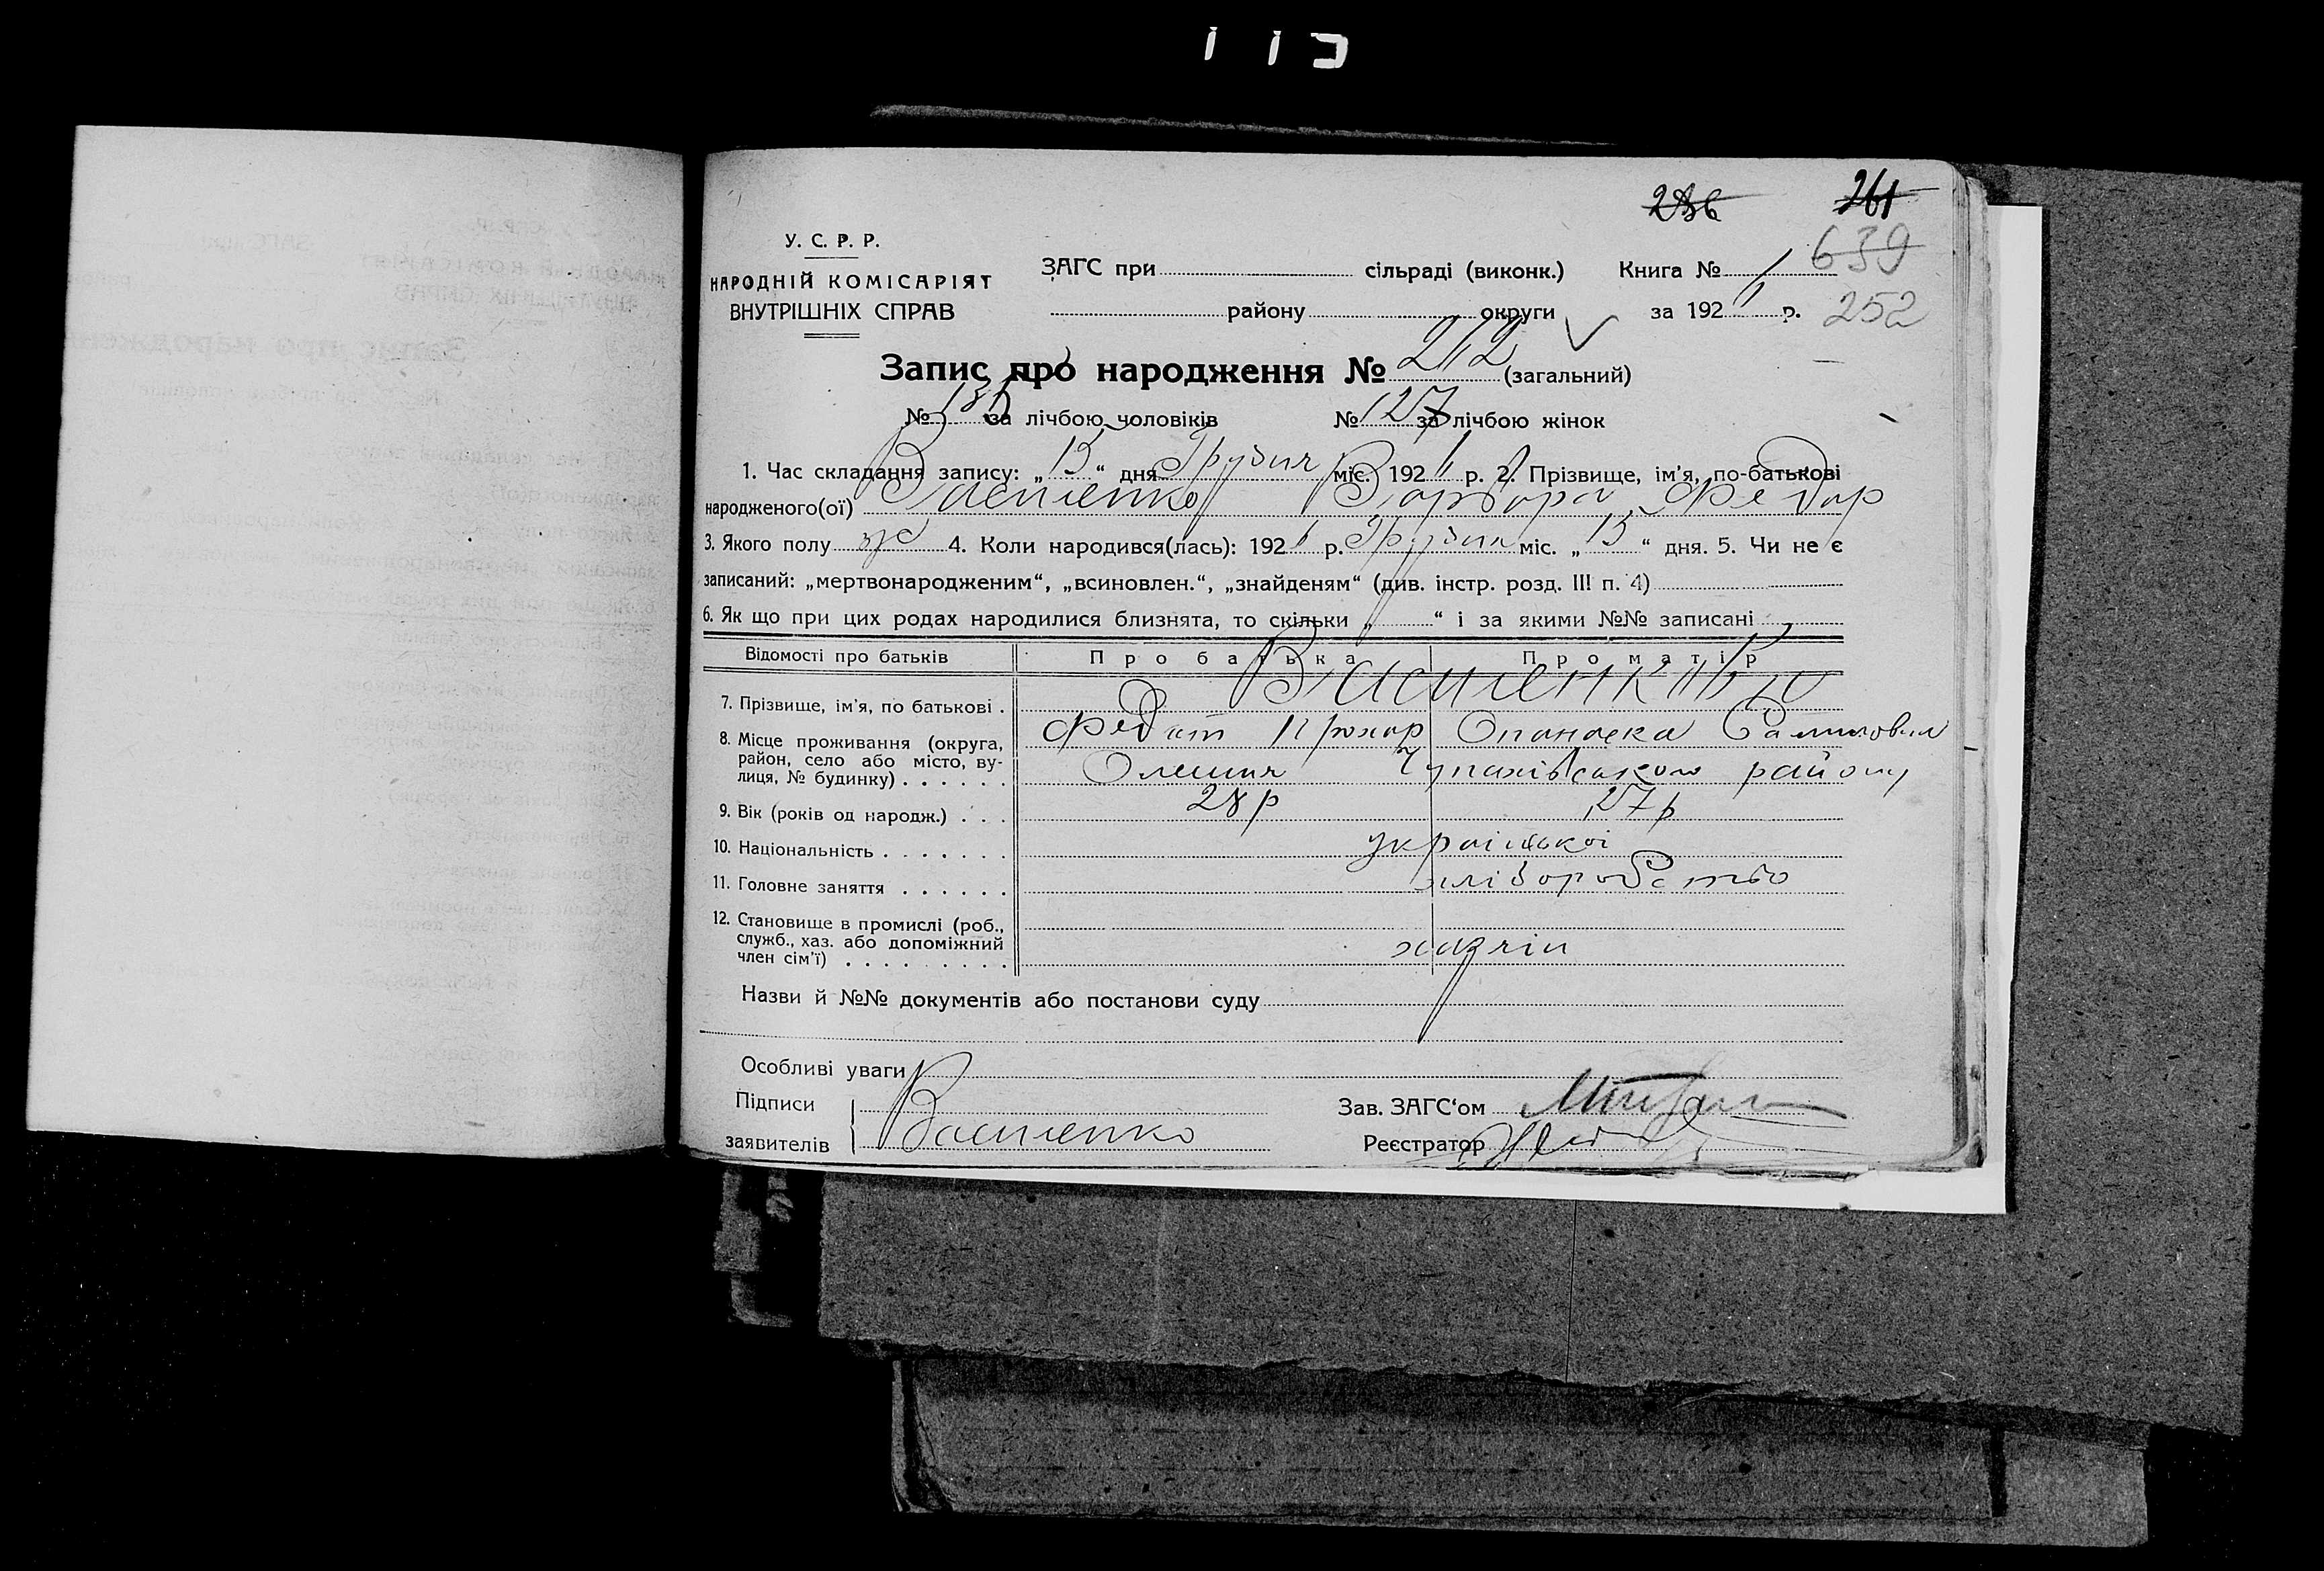 286 261
У. С. Р. Р.
639
НАРОДНІЙ КОМІСАРІЯТ ЗАГС при сільраді (виконк.) Книга № 1
ВНУТРІШНІХ СПРАВ району округи за 192 р. 252
Запис про народження № 212 (загальний)
№ за лічбою чоловіків № 127 за лічбою жінок
1. Час складання запису: „15“ дня Грудня міс. 192 р. 2. Прізвище, ім'я, по-батькові
народженого(ої) Василенко Варвара Федор
3. Якого полу ж 4. Коли народився(лась): 192 р. Грудня міс. „15“ дня. 5. Чи не є
записаний: „мертвонародженим“, „всиновлен.“, „знайденям“ (див. інстр. розд. III п. 4)
6. Як що при цих родах народилися близнята, то скільки „ “ і за якими №№ записані
Відомості про батьків Про батька Про матір
7. Прізвище, ім'я, по батькові .
8. Місце проживання (округа,
район, село або місто, ву-
лиця, № будинку) . . . . . .
Чупахівського району
9. Вік (років од народж.) . . . 28 р 27 р
10. Національність . . . . . . . української
11. Головне заняття . . . . . . хліборобство
12. Становище в промислі (роб.,
служб., хаз. або допоміжний
член сім'ї) . . . . . . . . . хазяїн
Назви й №№ документів або постанови суду
Особливі уваги
Підписи Зав. ЗАГС'ом
заявителів Василенко Реєстратор